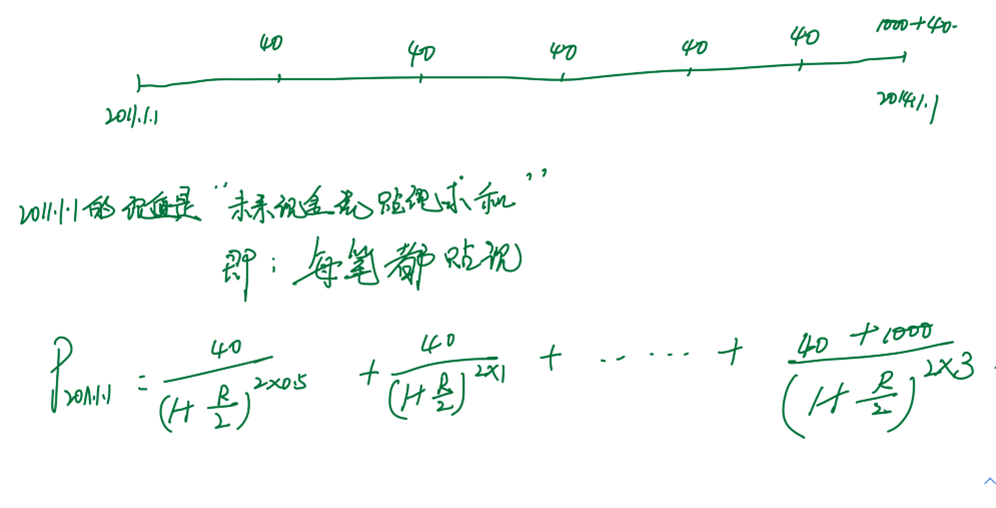 40 40 40 40 40 1000+40
2011.1.1 2014.1.1
2011.1.1的现值是“未来现金流贴现求和”
即：每笔都贴现
P2011.1.1 = 40/(1+R/2)^2×0.5 + 40/(1+R/2)^2×1 + ...... + 40+1000/(1+R/2)^2×3